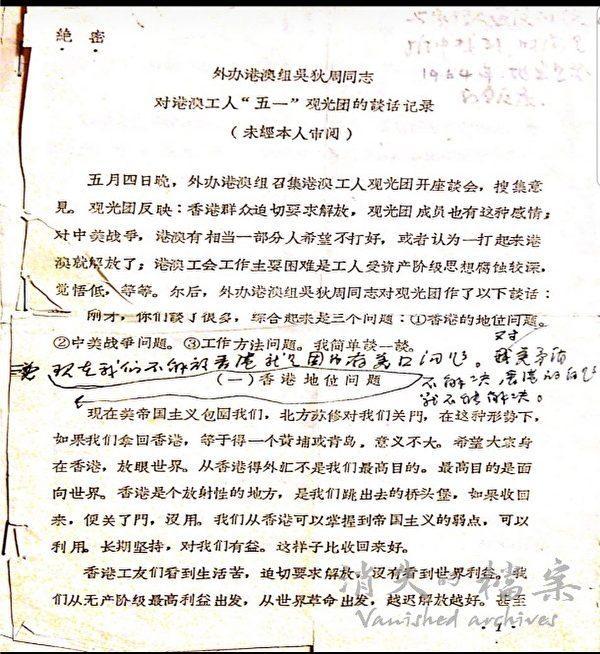 绝密
外办港澳組吳狄周同志
对港澳工人“五一”观光团的談話記录
（未經本人审閱）
五月四日晚，外办港澳組召集港澳工人观光团开座談会，搜集意
見。观光团反映：香港群众迫切要求解放，观光团成員也有这种感情；
对中美战爭，港澳有相当一部分人希望不打好，或者认为一打起来港
澳就解放了；港澳工会工作主要困难是工人受資产阶級思想腐蚀較深，
觉悟低，等等。尔后，外办港澳組吳狄周同志对观光团作了以下談話：
刚才，你们談了很多，綜合起来是三个問題：①香港的地位問題。
②中美战爭問題。③工作方法問題。我簡单談一談。
现在我们不解放香港就是因为有美
不解决，
就不能解决。
（一）香港地位問題
现在美帝国主义包围我们，北方苏修对我们关門，在这种形势下，
如果我们拿回香港，等于得一个黄埔或青岛，意义不大。希望大家身
在香港，放眼世界。从香港得外汇不是我们最高目的。最高目的是面
向世界。香港是个放射性的地方，是我们跳出去的桥头堡，如果收回
来，便关了門，沒用。我们从香港可以掌握到帝国主义的弱点，可以
利用。长期坚持，对我们有益。这样子比收回来好。
香港工友们看到生活苦，迫切要求解放，沒有看到世界利益。我
们从无产阶級最高利益出发，从世界革命出发，越迟解放越好。甚至
消失的檔案
Vanished archives
·1·